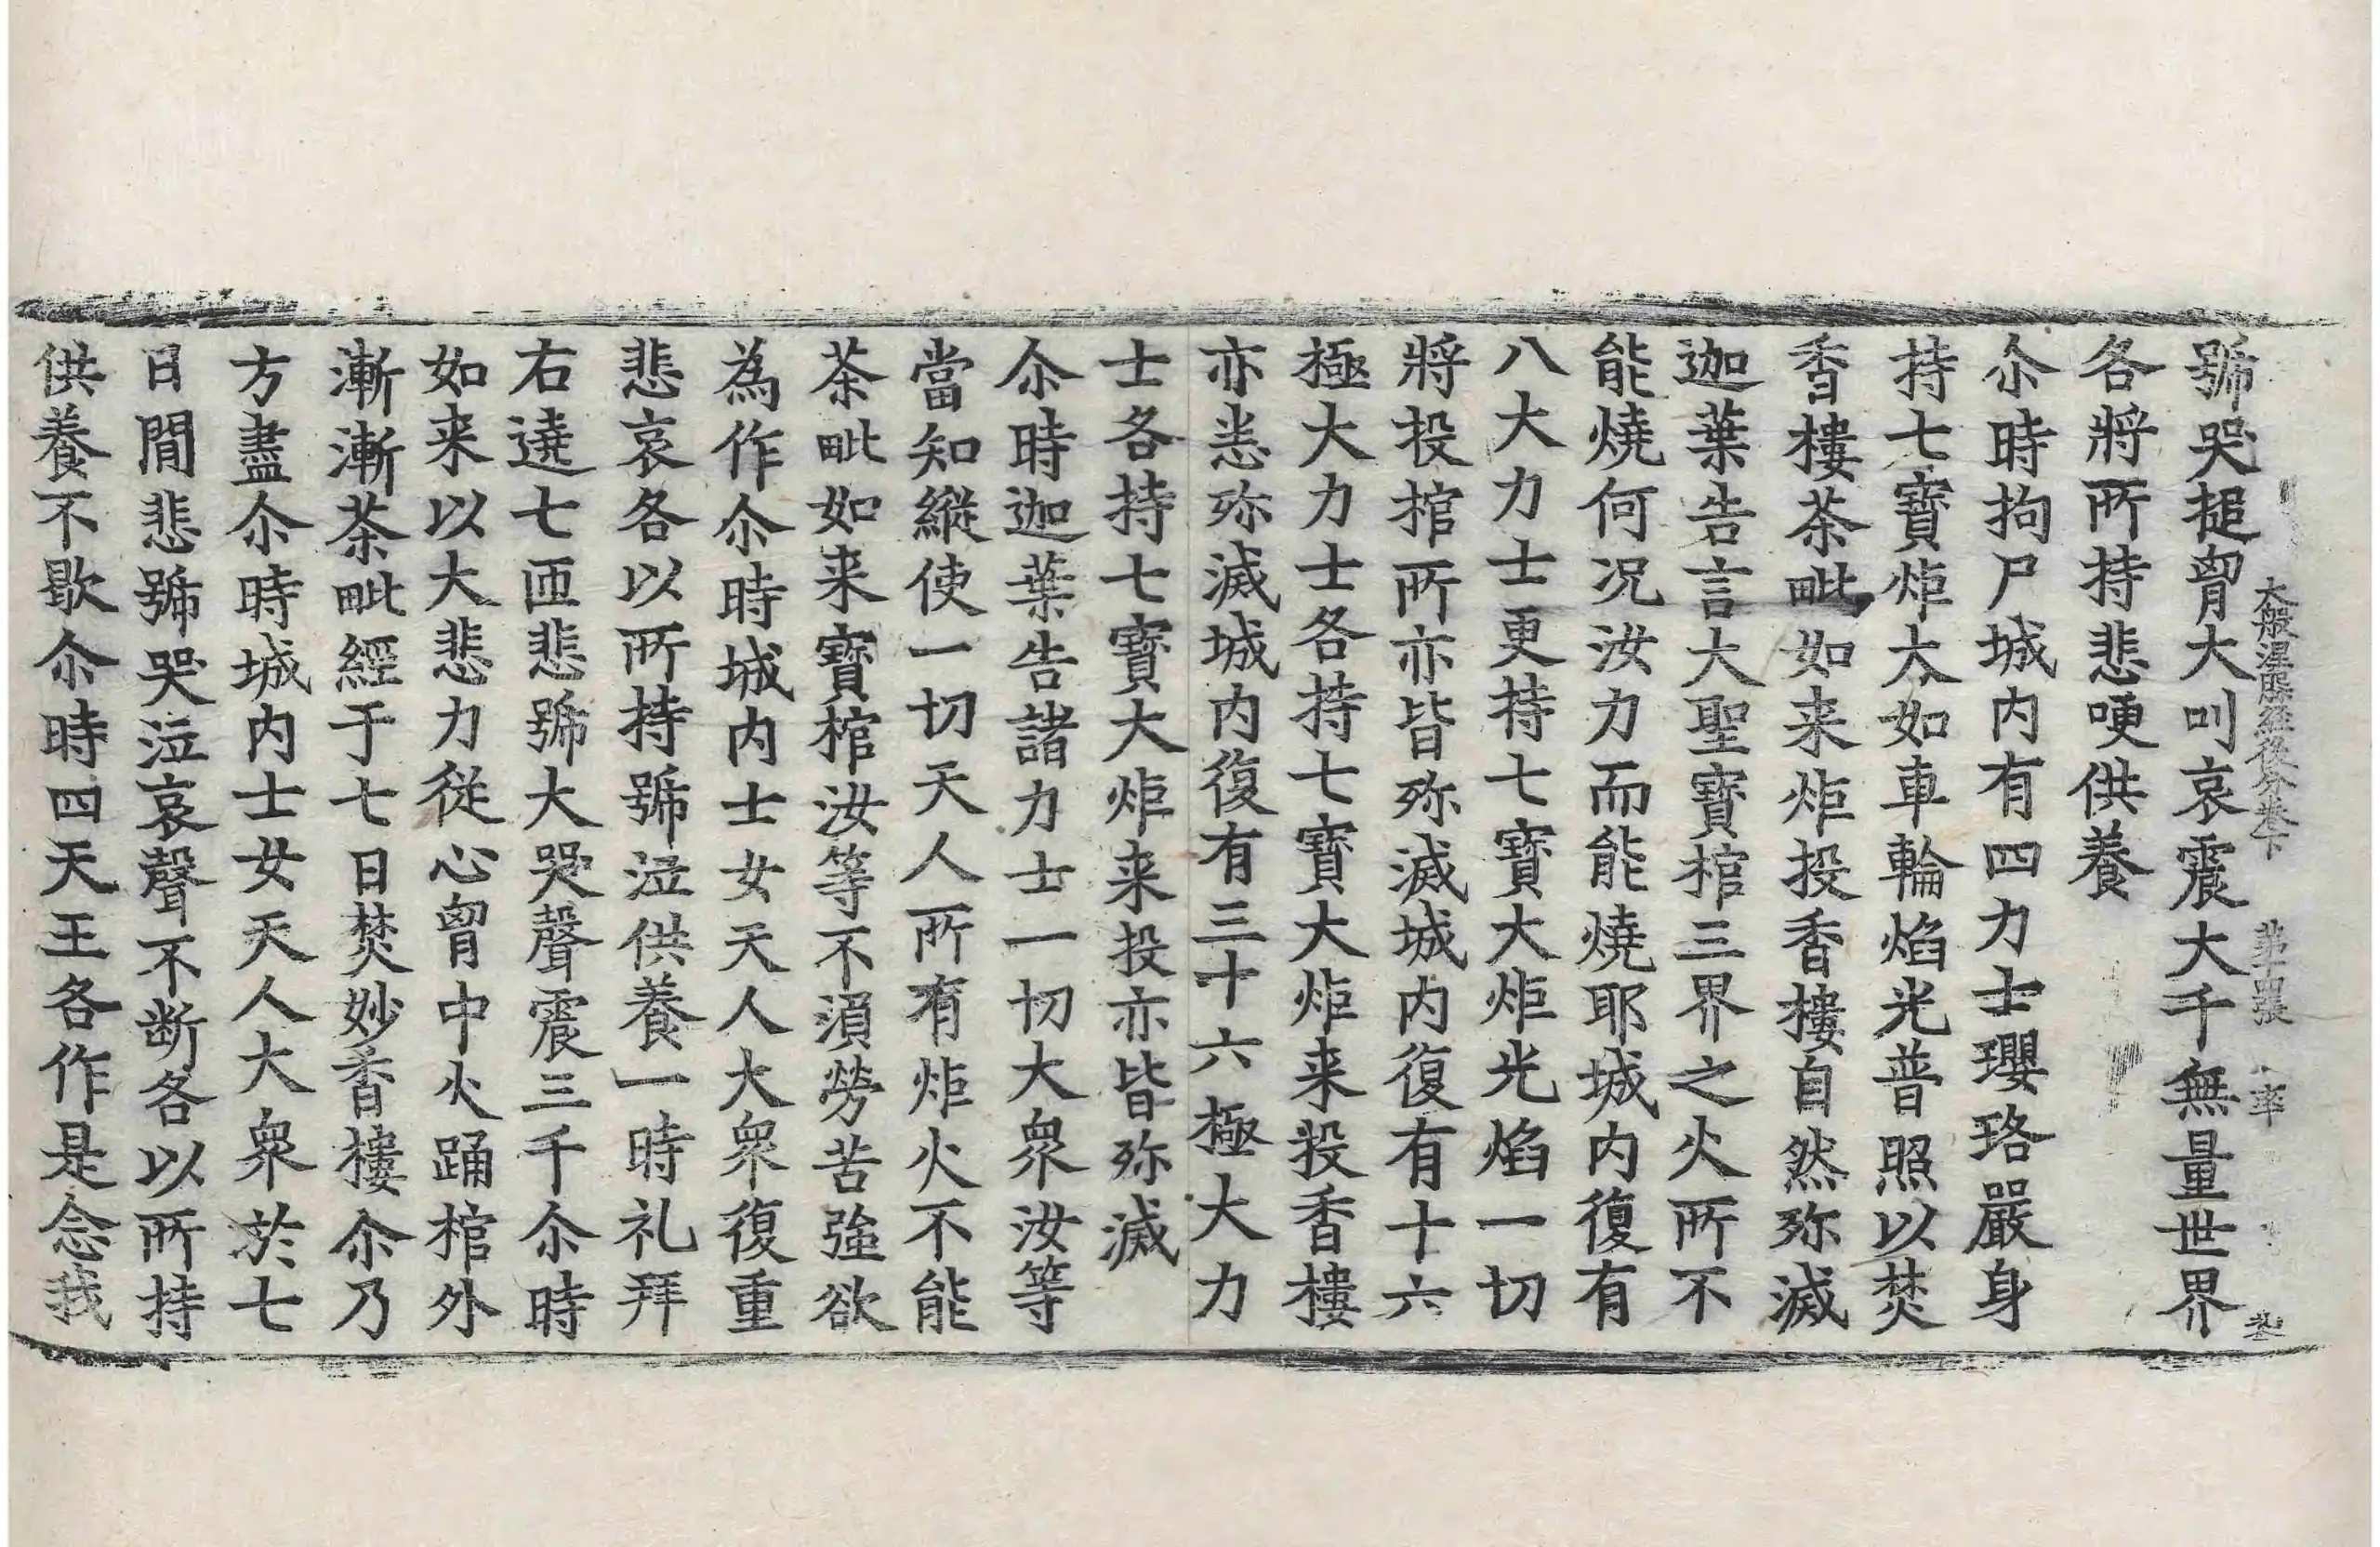 大般涅槃經後分卷下　第四張　率
號哭搥胷大叫哀震大千無量世界
各將所持悲哽供養
尒時拘尸城内有四力士瓔珞嚴身
持七寶炬大如車輪焰光普照以焚
香樓荼毗如来炬投香樓自然殄滅
迦葉告言大聖寶棺三界之火所不
能燒何況汝力而能燒耶城内復有
八大力士更持七寶大炬光焰一切
將投棺所亦皆殄滅城内復有十六
極大力士各持七寶大炬来投香樓
亦悉殄滅城内復有三十六極大力
士各持七寶大炬来投亦皆殄滅
尒時迦葉告諸力士一切大衆汝等
當知縱使一切天人所有炬火不能
荼毗如来寶棺汝等不湏勞苦強欲
為作尒時城内士女天人大衆復重
悲哀各以所持號泣供養一時礼拜
右遶七匝悲號大哭聲震三千尒時
如来以大悲力從心胷中火踊棺外
漸漸荼毗經于七日焚妙香樓尒乃
方盡尒時城内士女天人大衆於七
日間悲號哭泣哀聲不断各以所持
供養不歇尒時四天王各作是念我